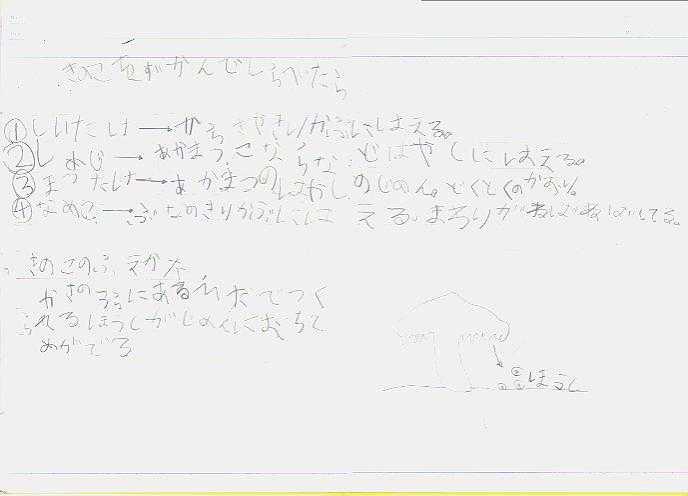 きのこをずかんでしらべたら
①しいたけ→かれきやきりかぶにはえる。
②しめじ→あかまつ、こならなどはやしにはえる。
③まつたけ→あかまつのはやしのじめん。どくとくのかおり。
④なめこ→ぶなのきりかぶにはえる。まわりがねばねばしてる。
きのこのふえかた
かさのうらにあるひだでつく
られるほうしがじめんにおちて
めがでる
ほうし